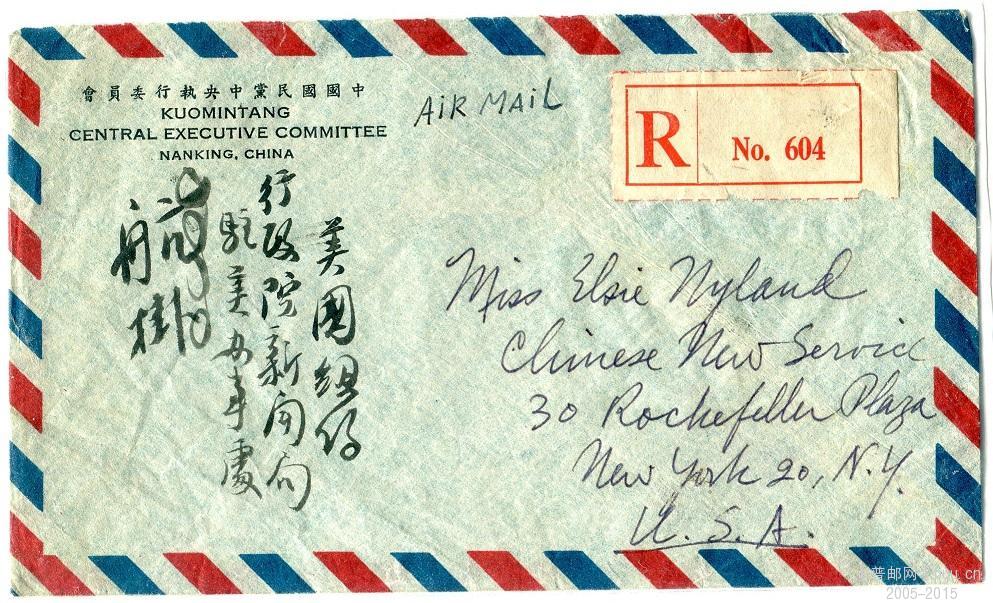 中國國民黨中央執行委員會
KUOMINTANG
CENTRAL EXECUTIVE COMMITTEE
NANKING, CHINA
AIR MAIL
R
No. 604
美國紐約
行政院新聞局
駐美办事處
Miss Elsie Nyland
Chinese New Service
30 Rockefeller Plaza
New York 20, N.Y.
U.S.A.
普邮网
2005-2015